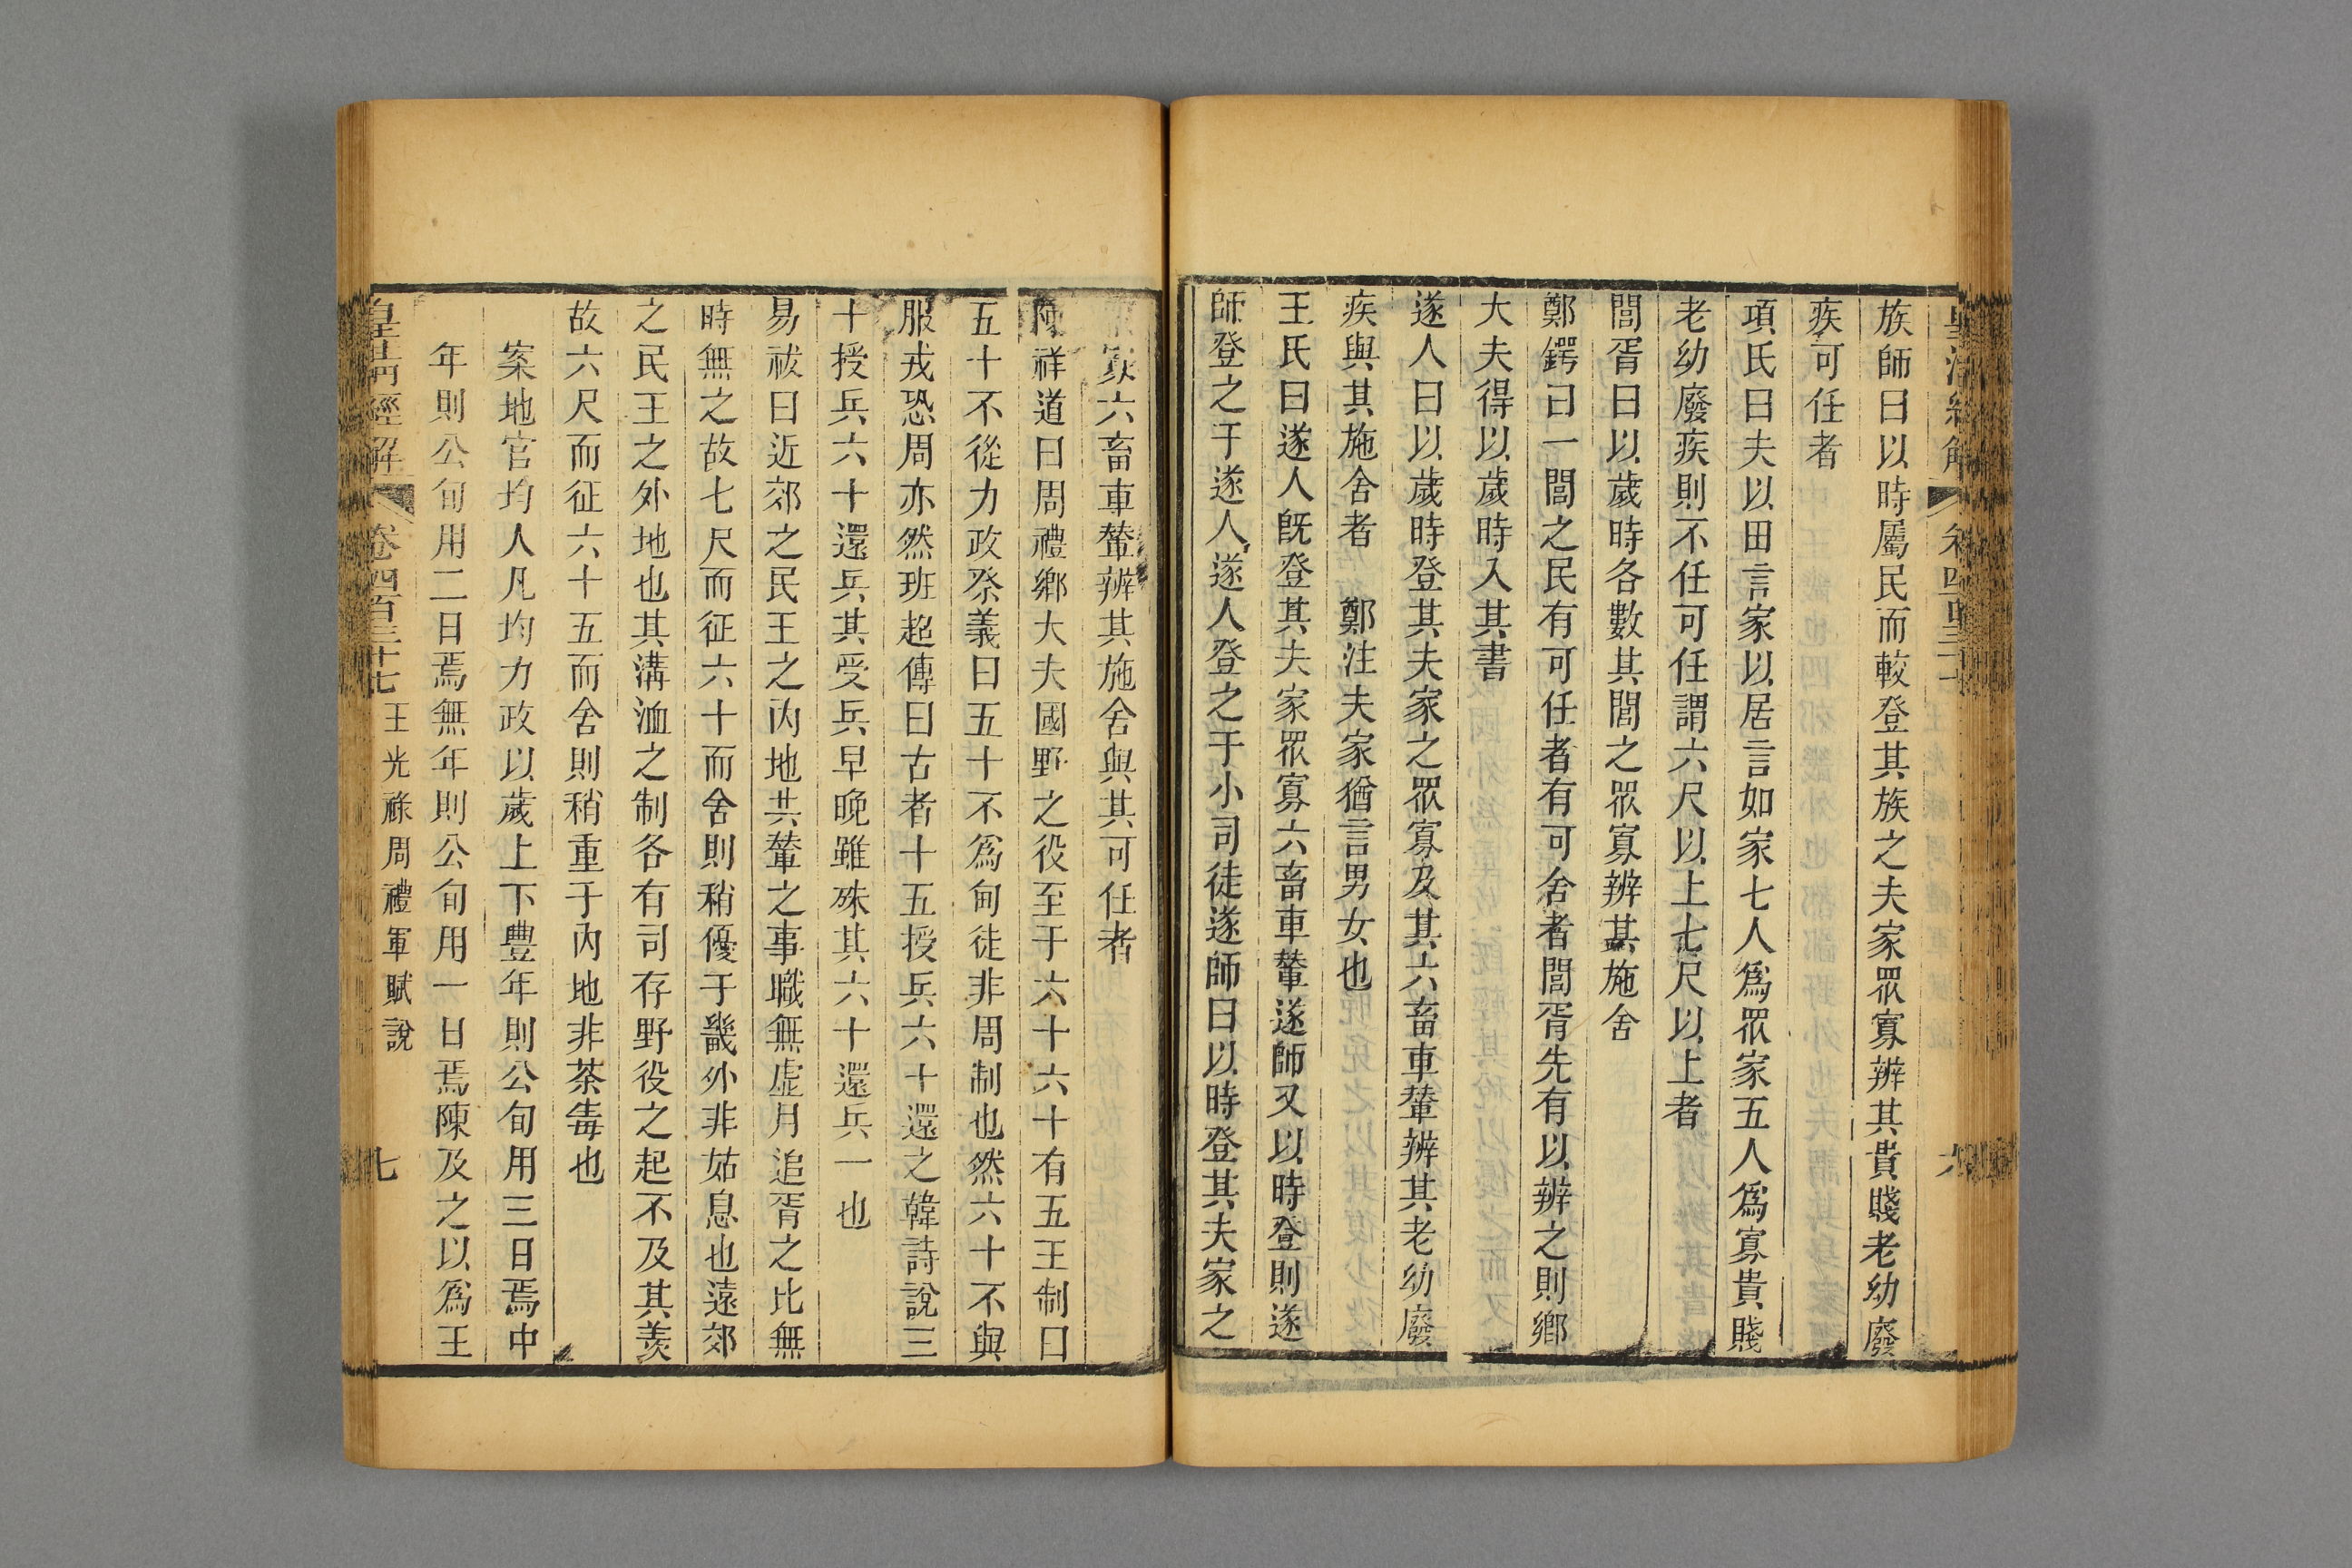 族師曰以時屬民而較登其族之夫家眾寡辨其貴賤老幼廢
疾可任者
項氏曰夫以田言家以居言如家七人爲眾家五人爲寡貴賤
老幼廢疾則不任可任謂六尺以上七尺以上者
閭胥曰以歲時各數其閭之眾寡辨其施舍
鄭鍔曰一閭之民有可任者有可舍者閭胥先有以辨之則鄉
大夫得以歲時入其書
遂人曰以歲時登其夫家之眾寡及其六畜車輦辨其老幼廢
疾與其施舍者 鄭注夫家猶言男女也
王氏曰遂人旣登其夫家眾寡六畜車輦遂師又以時登則遂
師登之于遂人遂人登之于小司徒遂師曰以時登其夫家之
寡六畜車輦辨其施舍與其可任者
陳祥道曰周禮鄉大夫國野之役至于六十六十有五王制曰
五十不從力政祭義曰五十不爲甸徒非周制也然六十不與
服戎恐周亦然班超傳曰古者十五授兵六十還之韓詩說三
十授兵六十還兵其受兵早晚雖殊其六十還兵一也
易祓曰近郊之民王之內地共輦之事職無虛月追胥之比無
時無之故七尺而征六十而舍則稍優于畿外非姑息也遠郊
之民王之外地也其溝洫之制各有司存野役之起不及其羨
故六尺而征六十五而舍則稍重于內地非荼毒也
案地官均人凡均力政以歲上下豐年則公旬用三日焉中
年則公旬用二日焉無年則公旬用一日焉陳及之以爲王
皇淸經解 卷四百三十七 王光祿周禮軍賦說 七